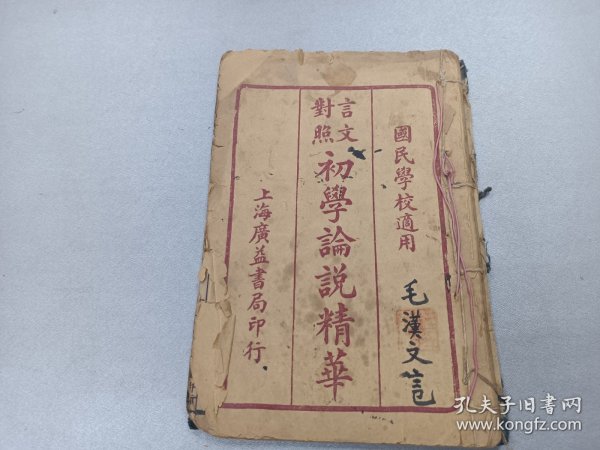 國民學校適用
言文
對照
初學論説精華
上海廣益書局印行
毛漢文
孔夫子旧书网